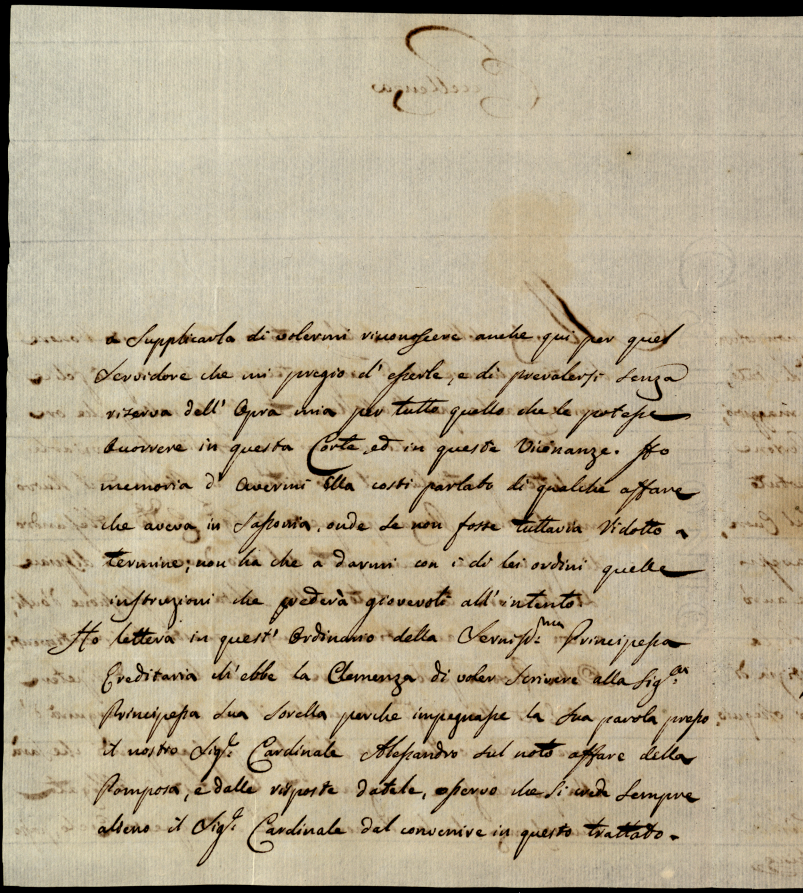 a Supplicarla di volermi riconoscere anche qui per quel
Servidore che mi pregio d' esserle, e di prevalersi senza
riserva dell' Opra mia per tutto quello che le potesse
Occorrere in questa Corte, ed in queste Vicinanze. Ho
memoria d' avermi Ella costì parlato di qualche affare
che aveva in Sassonia, onde se non fosse tuttavia ridotto a
termine; non ha che a darmi con i di lei ordini quelle
instruzioni che crederà giovevoli all' intento.
Ho lettera in quest' Ordinario della Sereniss.ma Principessa
Ereditaria ch' ebbe la Clemenza di voler Scrivere alla Sig.ra
Principessa Sua Sorella perche impegnasse la Sua parola presso
il nostro Sig.r Cardinale Alessandro sul noto affare della
Pomposa, e dalle risposte datele, osservo che Si crede Sempre
alieno il Sig.r Cardinale dal convenire in questo trattato.